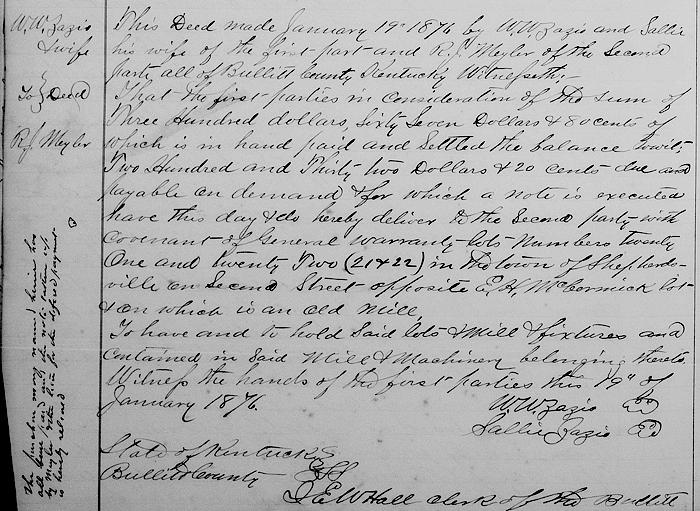 W. W. Zagio
& wife
To } Deed
R. J. Meyler
This Deed made January 19" 1876 by W. W. Zagio and Sallie
his wife of the first part and R. J. Meyler of the Second
part, all of Bullitt County Kentucky Witnesseth,-
That the first parties in consideration of the sum of
Three Hundred dollars, Sixty Seven Dollars & 80 cents of
which is in hand paid and settled the balance towit;
Two Hundred and Thirty two Dollars & 20 cents due and
payable on demand & for which a note is executed
have this day & do hereby deliver to the Second party with
covenant of General Warranty lots numbers twenty
One and twenty Two (21 & 22) in the town of Shepherds-
ville on Second Street opposite E. H. McCormick lot
& on which is an old mill,
To have and to hold Said lots & Mill & fixtures and
contained in Said Mill & Machinery belonging thereto
Witness the hands of the first parties this 19" of
January 1876.
W. W. Zagio
Sallie Zagio
State of Kentucky
Bullitt County } SS
I E W Hall clerk of the Bullitt
The purchase money named herein has
all been paid and the note taken up
by Meyler the lien for the deferred payment
is hereby released